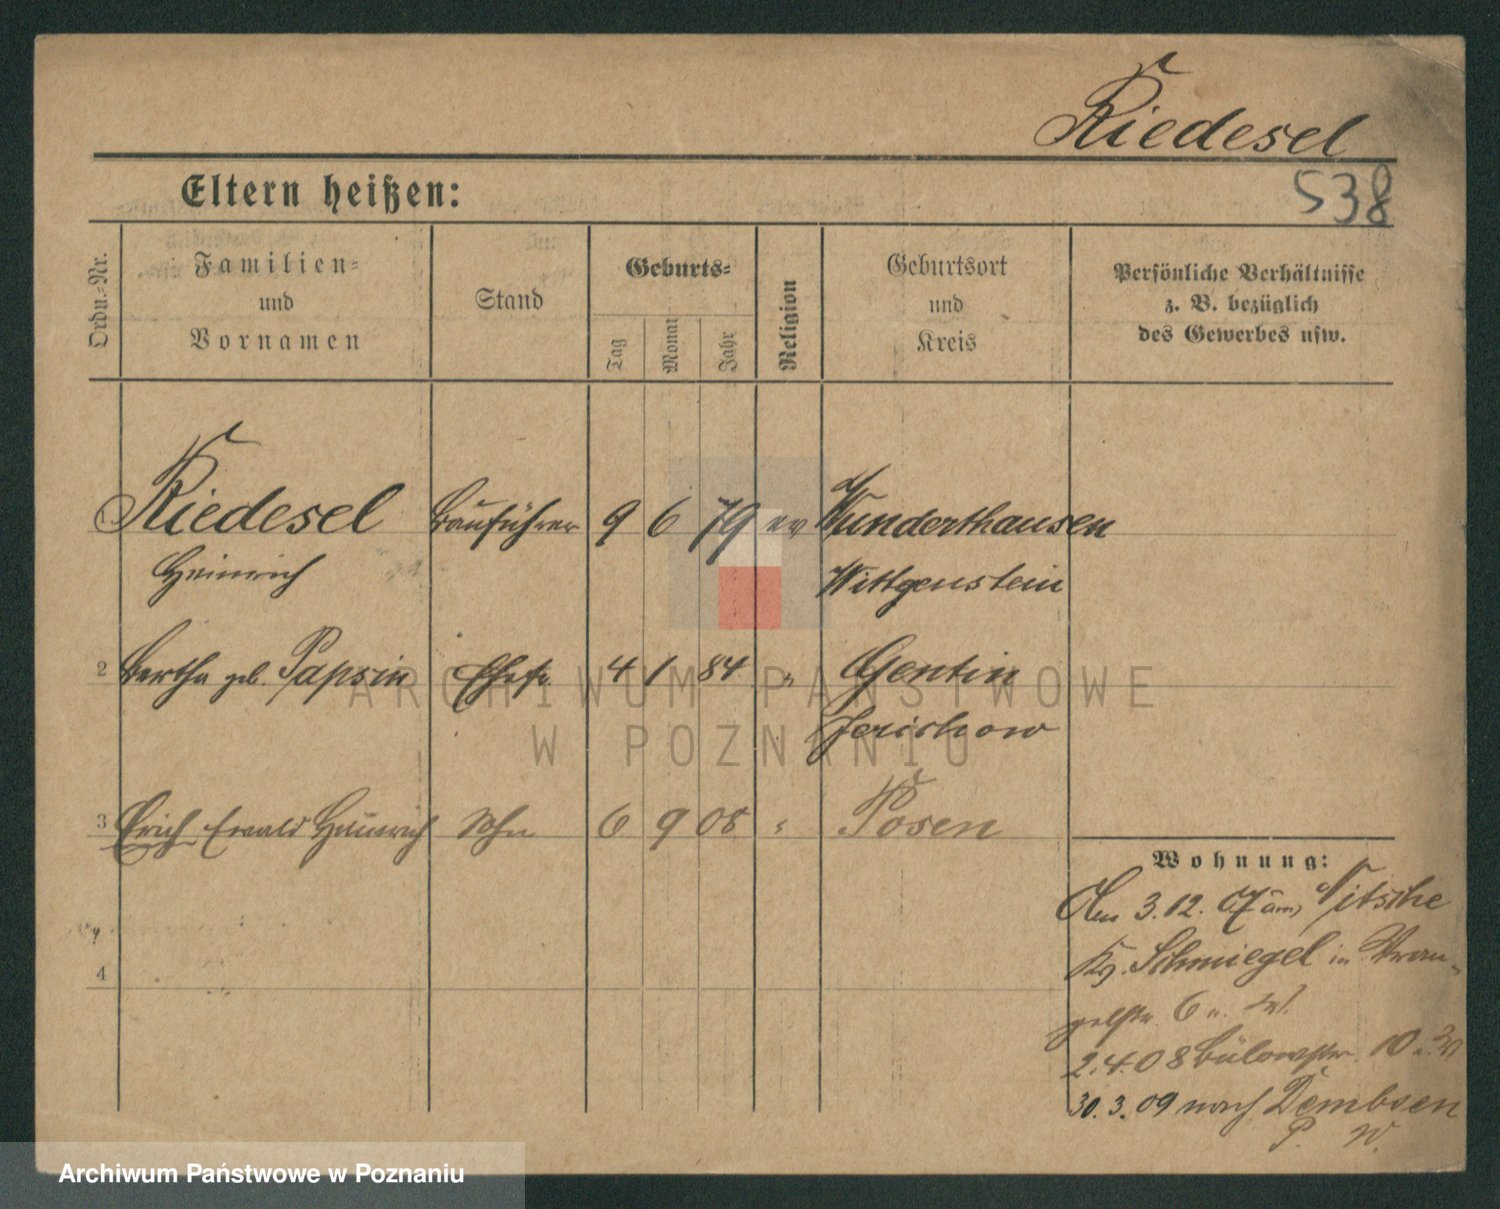 Riedesel
538
Eltern heißen:
Ordn.-Nr.
Familien-
und
Vornamen
Stand
Geburts-
Tag
Monat
Jahr
Religion
Geburtsort
und
Kreis
Persönliche Verhältnisse
z. B. bezüglich
des Gewerbes usw.
Riedesel Bauführer 9 6 79 ev Wunderthausen
Heinrich Wittgenstein
2 Bertha geb. Papsin Ehefr. 4 1 84 " Gentin
Jerichow
3 Erich Ewald Heinrich Sohn 6 9 08 " Posen
4
Wohnung:
3.12.07 Nitsche
Schmiegel in Wran-
gelstr. 6
2.4.08 Bülowstr. 10
30.3.09 nach Dembsen
P. W.
ARCHIWUM PAŃSTWOWE
W POZNANIU
Archiwum Państwowe w Poznaniu